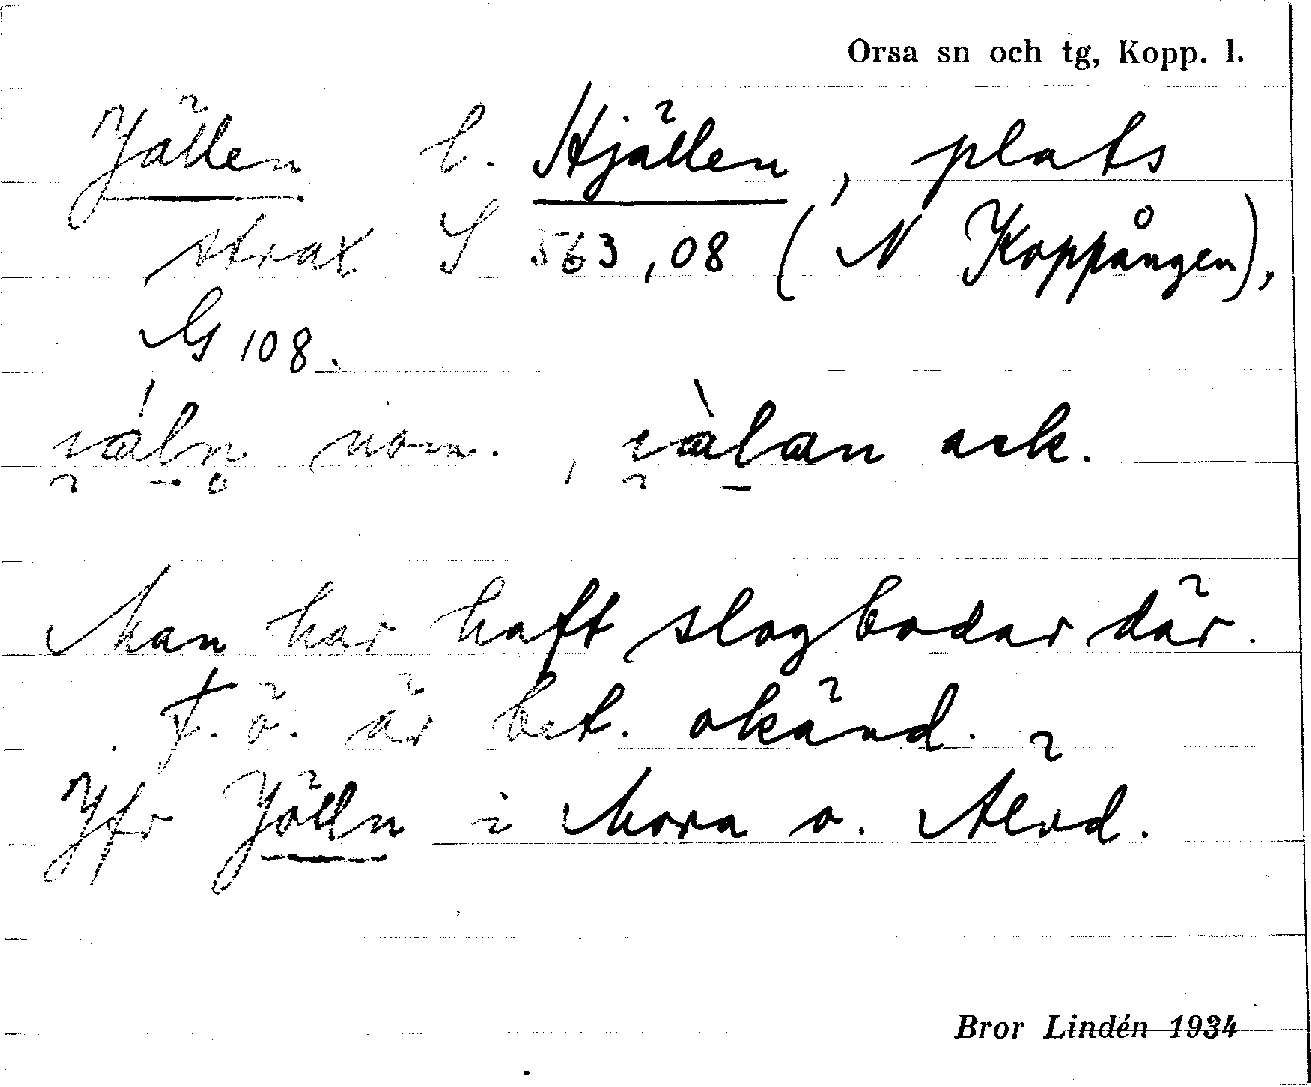 Orsa sn och tg, Kopp. l.
Jällen l. Hjällen, plats
strax S 563,08 (N Koppången),
G 108.
nom., ack.
Man har haft slogbodar där.
F. ö. är bet. okänd.
Jfr Jälln i Mora o. Älvd.
Bror Lindén 1934